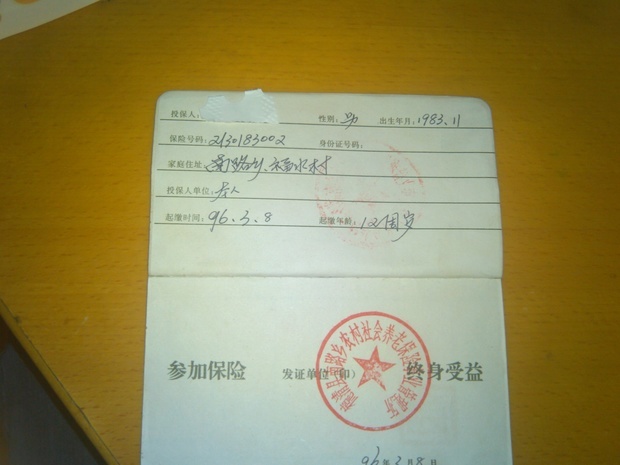 投保人: 性别: 男 出生年月: 1983.11
保险号码: 2130183002 身份证号码:
家庭住址: 南路乡 福水村
投保人单位: 本人
起缴时间: 96.3.8 起缴年龄: 12周岁
参加保险 发证单位(印) 终身受益
乡农村社会养老保险
96年3月8日